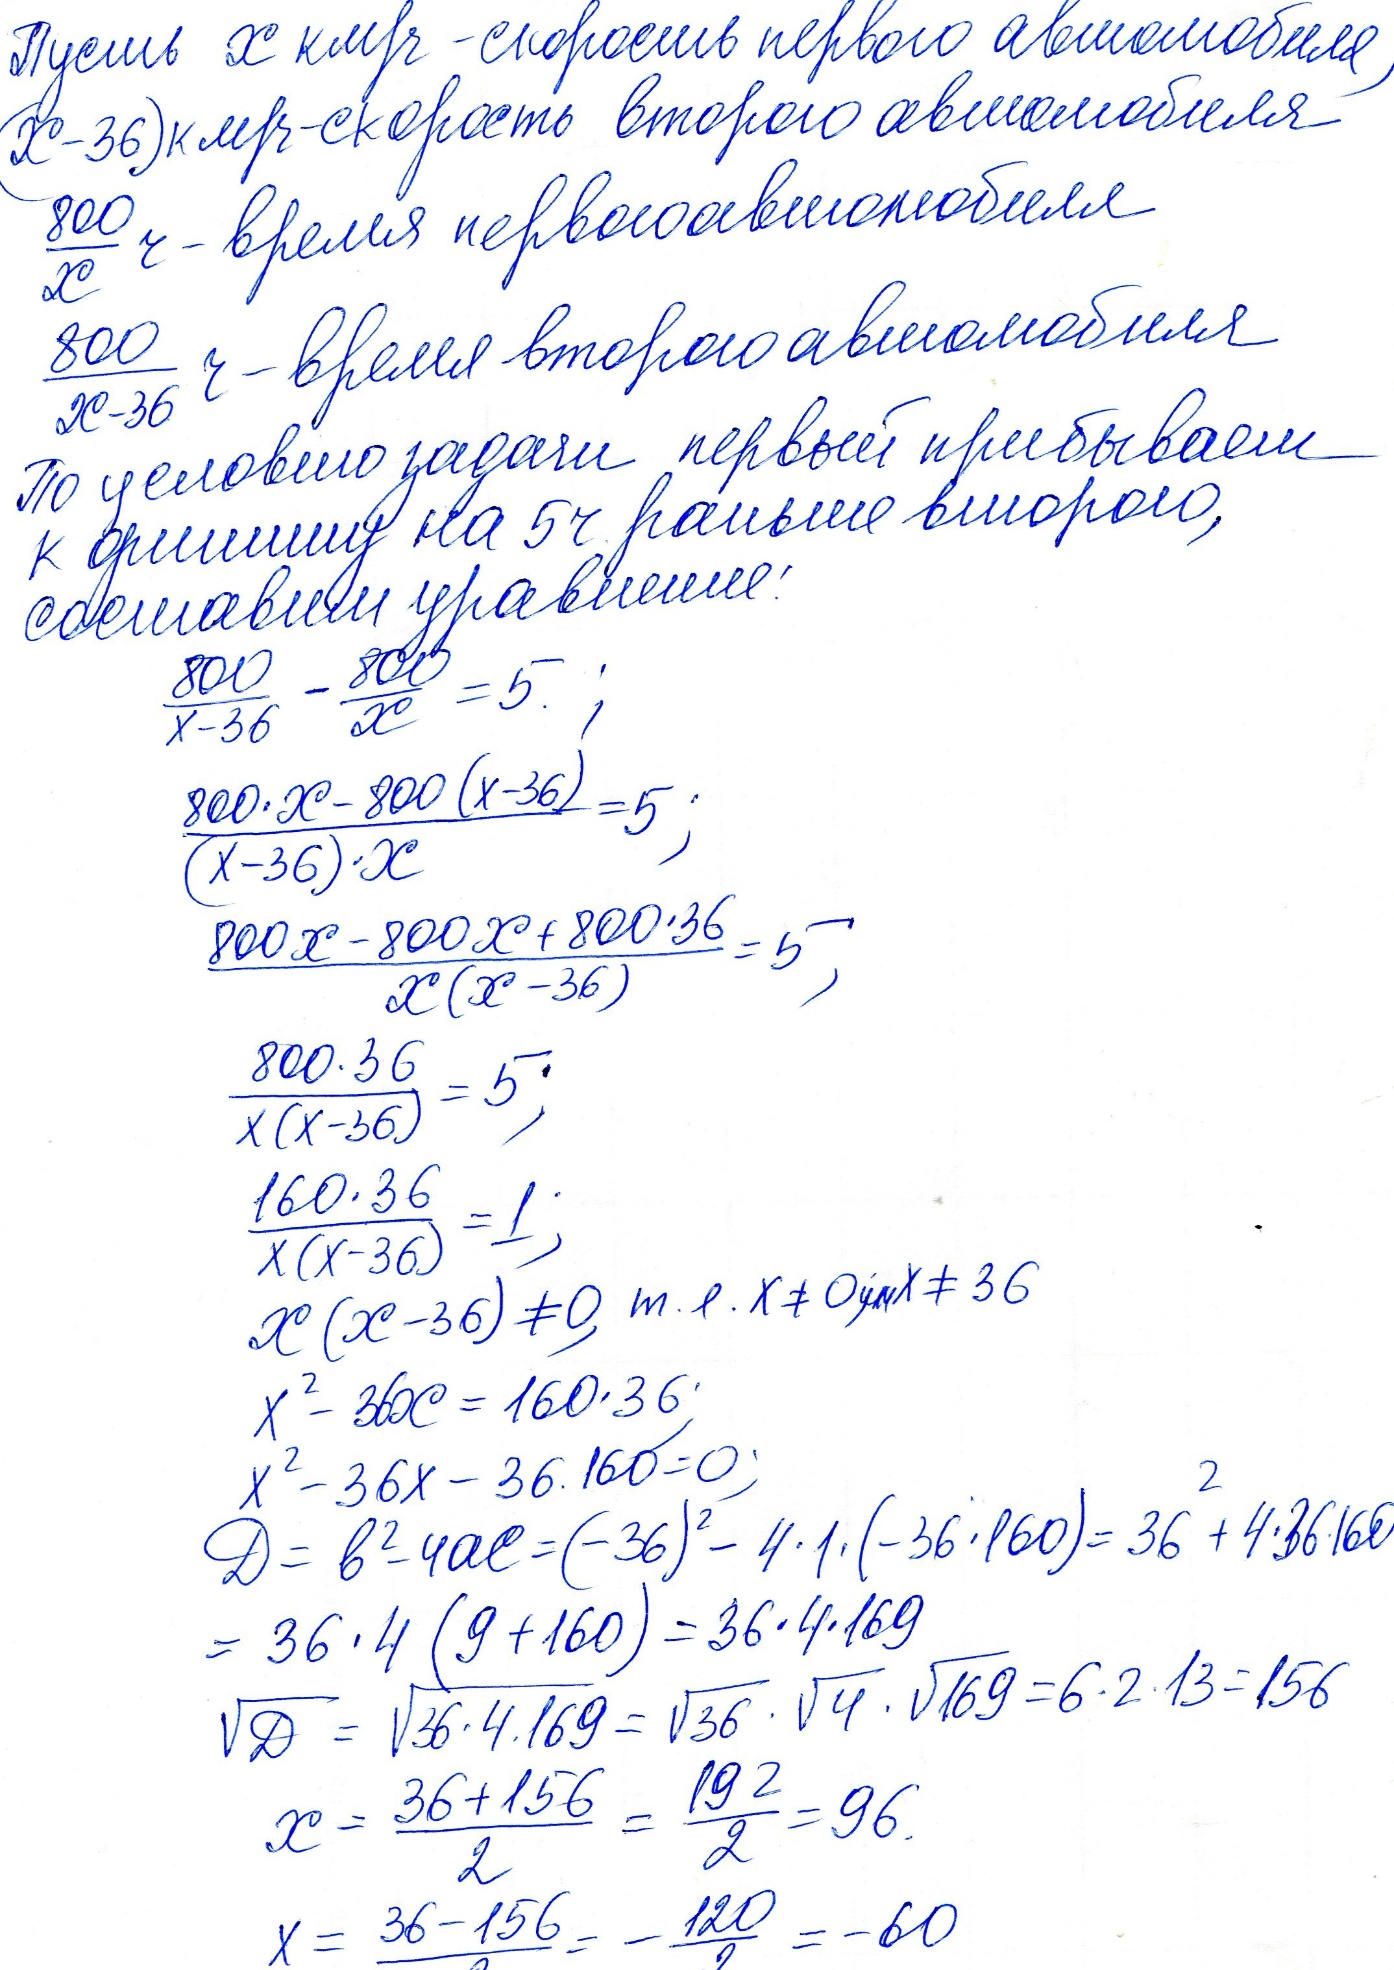 Пусть x км/ч - скорость первого автомобиля,
(x-36) км/ч - скорость второго автомобиля
800/x ч - время первого автомобиля
800/(x-36) ч - время второго автомобиля
По условию задачи первый прибывает
к финишу на 5 ч раньше второго,
составим уравнение:
800/(x-36) - 800/x = 5;
(800·x - 800(x-36))/((x-36)·x) = 5;
(800x - 800x + 800·36)/(x(x-36)) = 5;
800·36/(x(x-36)) = 5;
160·36/(x(x-36)) = 1;
x(x-36) ≠ 0, т.е. x ≠ 0 или x ≠ 36
x² - 36x = 160·36;
x² - 36x - 36·160 = 0;
D = b² - 4ac = (-36)² - 4·1·(-36·160) = 36² + 4·36·160
= 36·4(9+160) = 36·4·169
√D = √36·4·169 = √36·√4·√169 = 6·2·13 = 156
x = (36+156)/2 = 192/2 = 96.
x = (36-156)/2 = -120/2 = -60